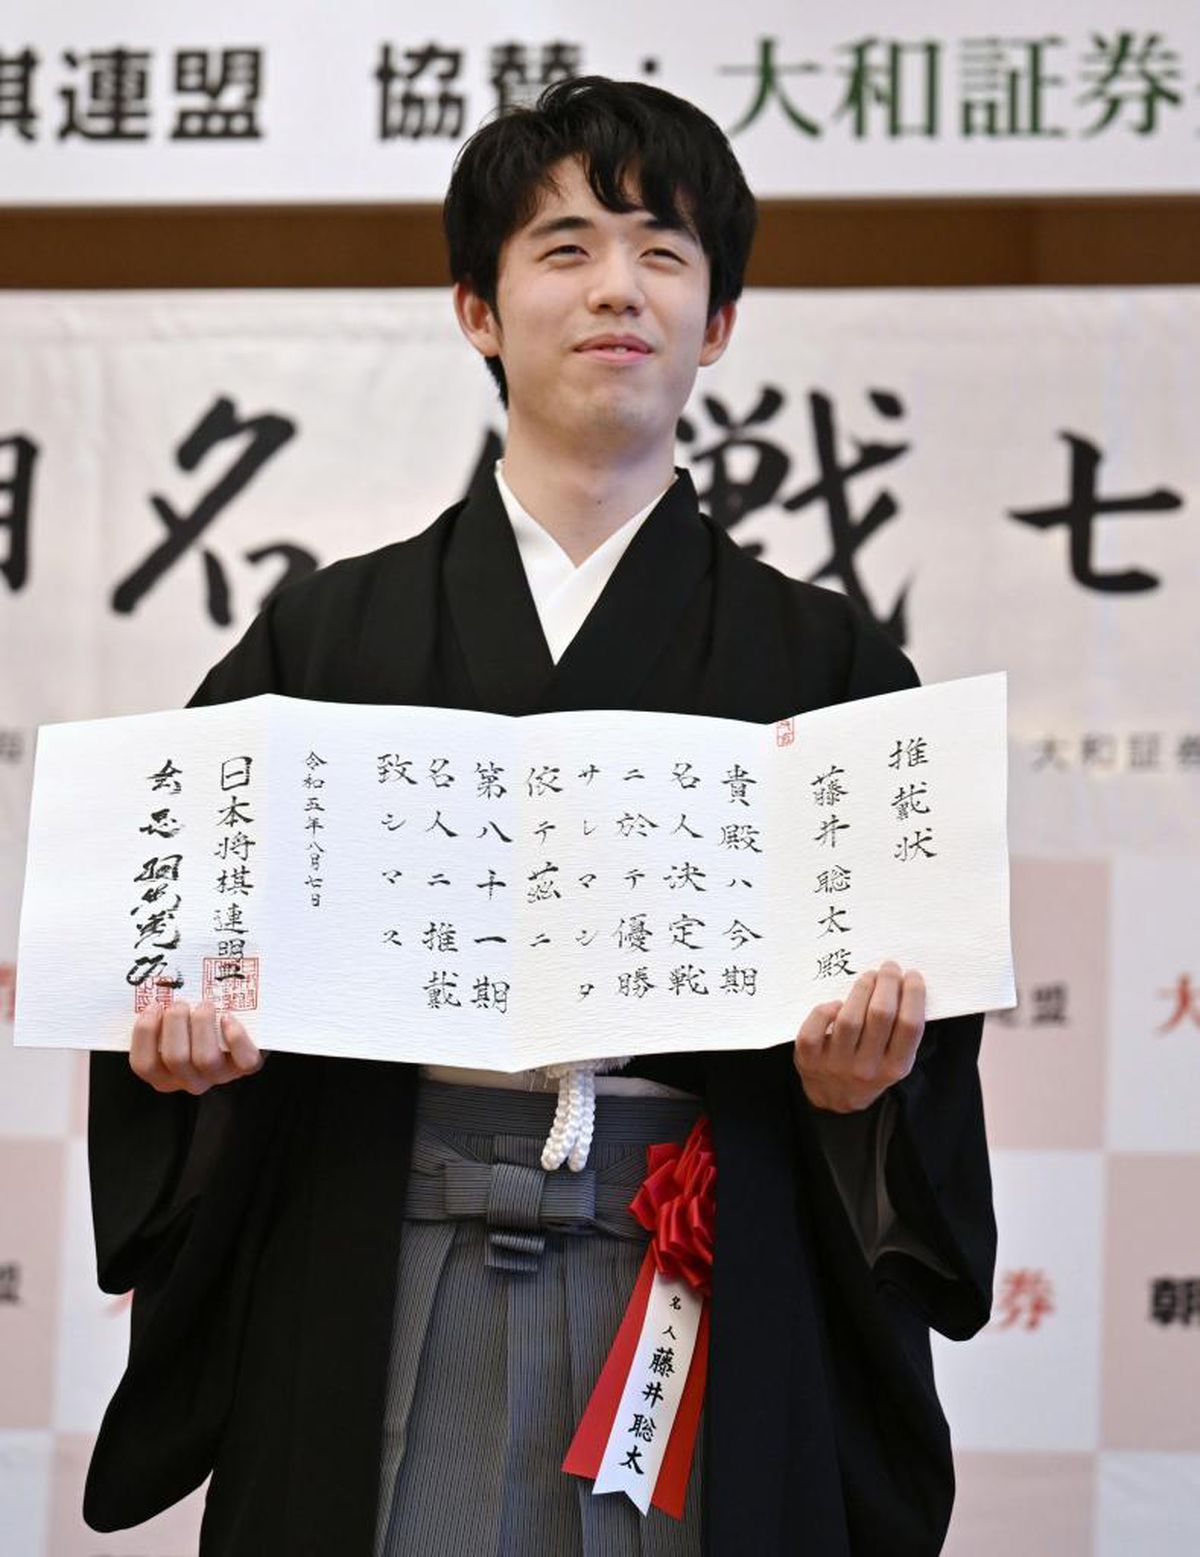 棋連盟 協賛：大和証券
名人戦七
推戴状
藤井聡太殿
貴殿ハ今期
名人決定戦
ニ於テ優勝
サレマシタ
依テ茲ニ
第八十一期
名人ニ推戴
致シマス
令和五年八月七日
日本将棋連盟
会長 羽生善治
大和証券
盟
大
券
朝
名人 藤井聡太